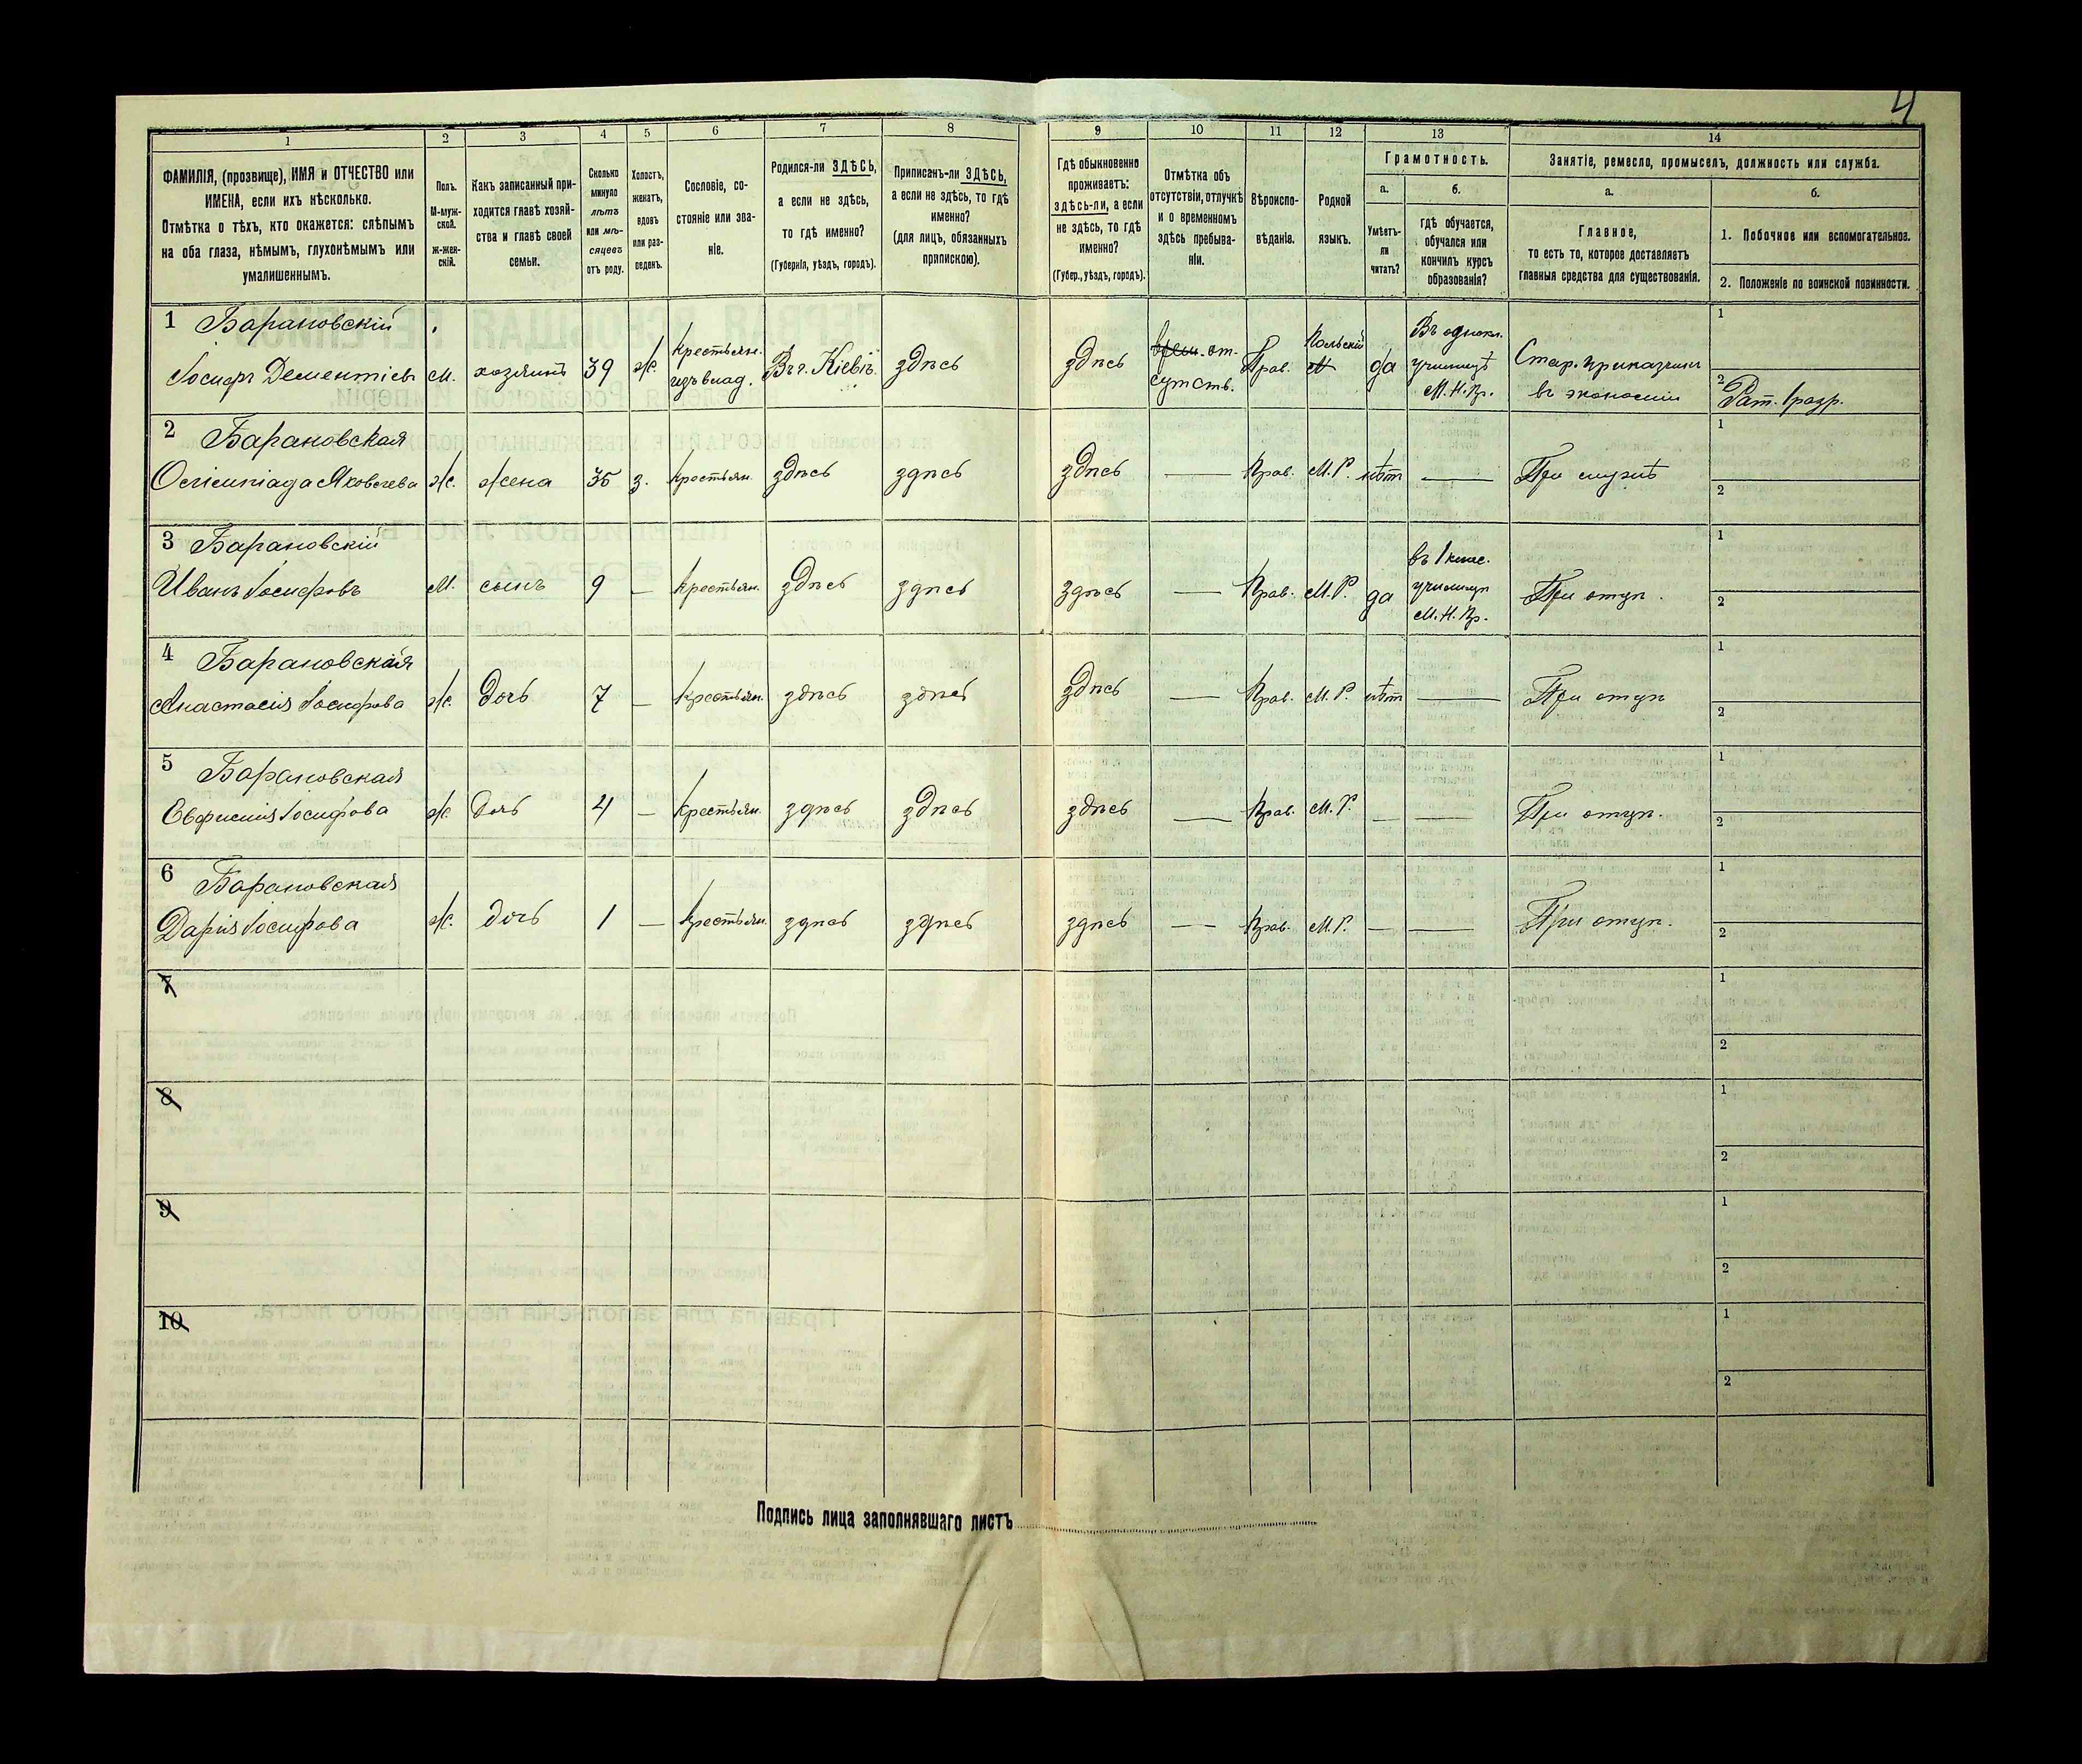 4
1
2
3
4
5
6
7
8
9
10
11
12
13
14
ФАМИЛІЯ, (прозвище), ИМЯ и ОТЧЕСТВО или
ИМЕНА, если ихъ нѣсколько.
Отмѣтка о тѣхъ, кто окажется: слѣпымъ
на оба глаза, нѣмымъ, глухонѣмымъ или
умалишеннымъ.
Полъ.
М-муж-
ской.
Ж-жен-
скій.
Какъ записанный при-
ходится главѣ хозяй-
ства и главѣ своей
семьи.
Сколько
минуло
лѣтъ
или мѣ-
сяцевъ
отъ роду.
Холостъ,
женатъ,
вдовъ
или раз-
веденъ.
Сословіе, со-
стояніе или зва-
ніе.
Родился-ли ЗДѢСЬ,
а если не здѣсь,
то гдѣ именно?
(Губернія, уѣздъ, городъ).
Приписанъ-ли ЗДѢСЬ,
а если не здѣсь, то гдѣ
именно?
(для лицъ, обязанныхъ
припискою).
Гдѣ обыкновенно
проживаетъ:
здѣсь-ли, а если
не здѣсь, то гдѣ
именно?
(Губер., уѣздъ, городъ).
Отмѣтка объ
отсутствіи, отлучкѣ
и о временномъ
здѣсь пребыва-
ніи.
Вѣроиспо-
вѣданіе.
Родной
языкъ.
Грамотность.
а.
Умѣетъ-
ли
читать?
б.
гдѣ обучается,
обучался или
кончилъ курсъ
образованія?
Занятіе, ремесло, промыселъ, должность или служба.
а.
Главное,
то есть то, которое доставляетъ
главныя средства для существованія.
б.
1. Побочное или вспомогательное.
2. Положеніе по воинской повинности.
1 Барановскій
Іосифъ Дементіевъ
м.
хозяинъ
39
ж.
Крестьян.
изъ влад.
Въ г. Кіевѣ
здѣсь
здѣсь
врем. от-
сутств.
Прав.
Польскій
да
Въ однокл.
училищѣ
М.Н.Пр.
Стар. приказчик
въ экономіи
1
2 Рат. 1 разр.
2 Барановская
Яковлева
ж.
жена
35
з.
Крестьян.
здѣсь
здѣсь
здѣсь
—
Прав.
М.Р.
нѣт
—
При мужѣ
1
2
3 Барановскій
Иванъ Іосифовъ
м.
сынъ
9
—
Крестьян.
здѣсь
здѣсь
здѣсь
—
Прав.
М.Р.
да
въ 1 клас.
училищѣ
М.Н.Пр.
При отцѣ.
1
2
4 Барановская
Анастасія Іосифова
ж.
дочь
7
—
Крестьян.
здѣсь
здѣсь
здѣсь
—
Прав.
М.Р.
нѣт
—
При отцѣ
1
2
5 Барановская
Евфимія Іосифова
ж.
дочь
4
—
Крестьян.
здѣсь
здѣсь
здѣсь
—
Прав.
М.Р.
—
—
При отцѣ.
1
2
6 Барановская
Дарія Іосифова
ж.
дочь
1
—
Крестьян.
здѣсь
здѣсь
здѣсь
—
Прав.
М.Р.
—
—
При отцѣ.
1
2
7
1
2
8
1
2
9
1
2
10
1
2
Подпись лица заполнявшаго листъ